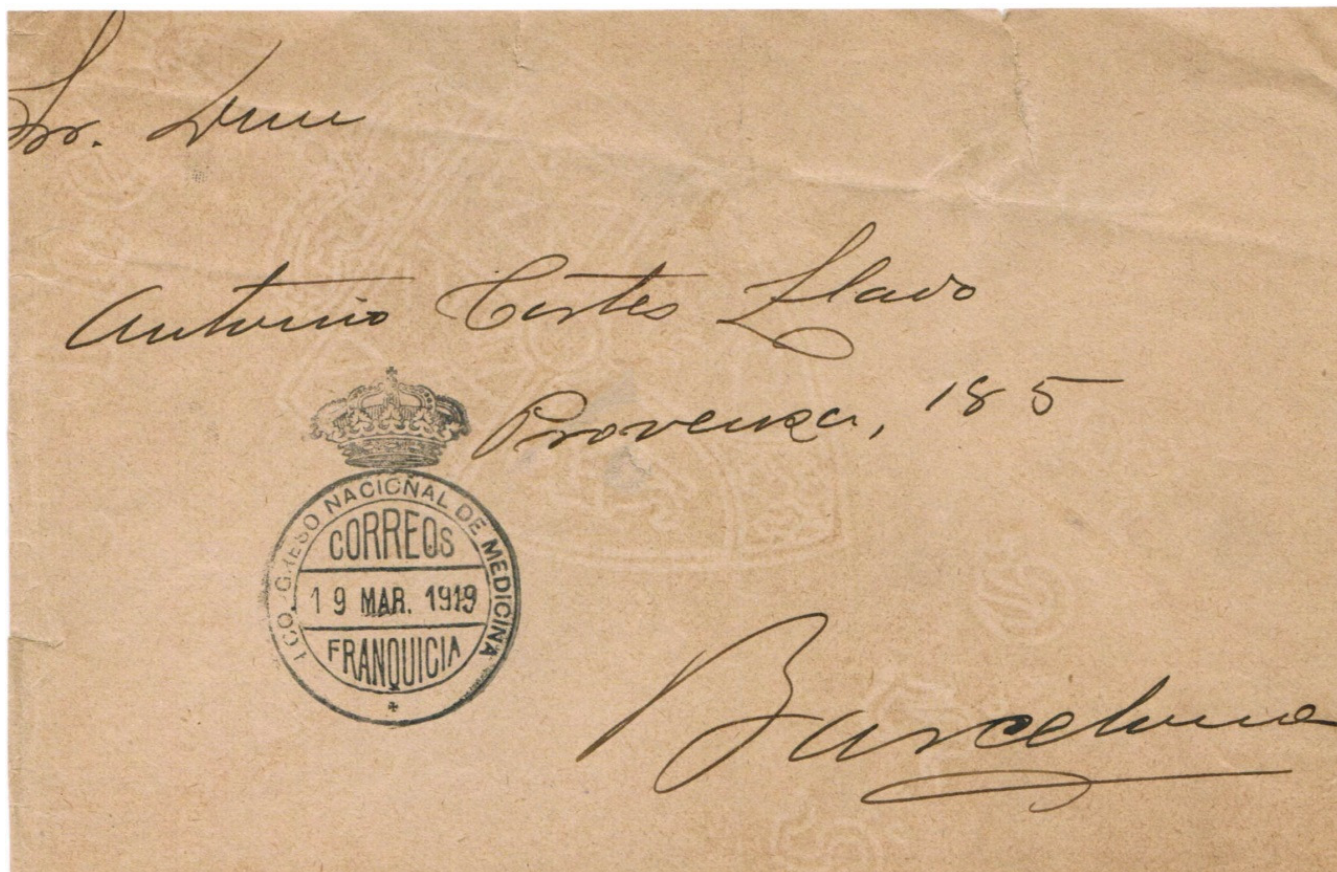 Sr. Don
Antonio Cortes Llavo
Provenza, 185
1 CONGRESO NACIONAL DE MEDICINA
CORREOS
19 MAR. 1919
FRANQUICIA
Barcelona